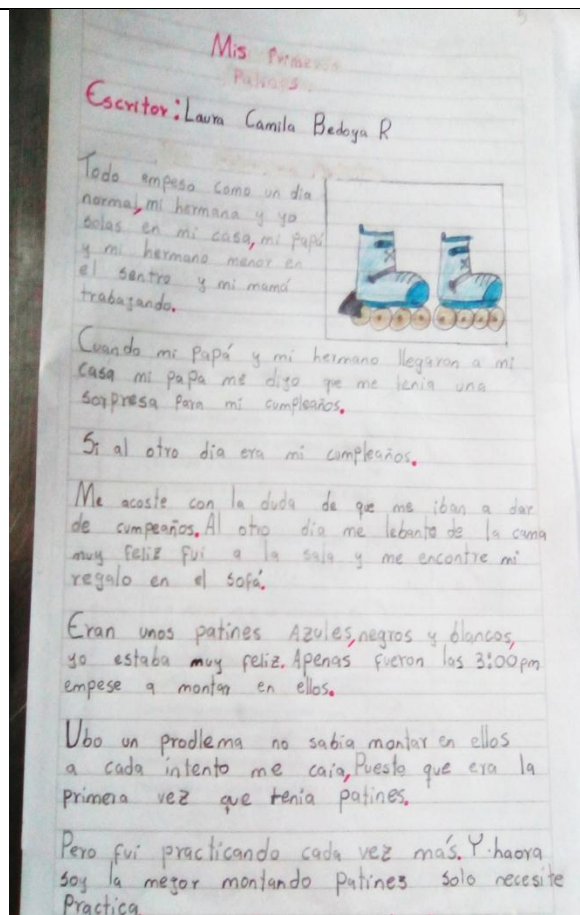 Mis Primeros
Patines
Escritor: Laura Camila Bedoya R
Todo empeso como un dia
normal, mi hermana y yo
solas en mi casa, mi papá
y mi hermano menor en
el sentro y mi mamá
trabajando.
Cuando mi Papá y mi hermano llegaron a mi
casa mi papa me dijo que me tenia una
sorpresa Para mi cumpleaños.
Si al otro dia era mi cumpleaños.
Me acoste con la duda de que me iban a dar
de cumpeaños. Al otro dia me lebante de la cama
muy feliz fui a la sala y me encontre mi
regalo en el sofá.
Eran unos patines Azules, negros y blancos,
yo estaba muy feliz. Apenas fueron las 3:00pm
empese a montar en ellos.
Ubo un prodlema no sabia montar en ellos
a cada intento me caia, Puesto que era la
primera vez que tenia patines.
Pero fui practicando cada vez más. Y haora
soy la mejor montando Patines solo necesite
Practica.